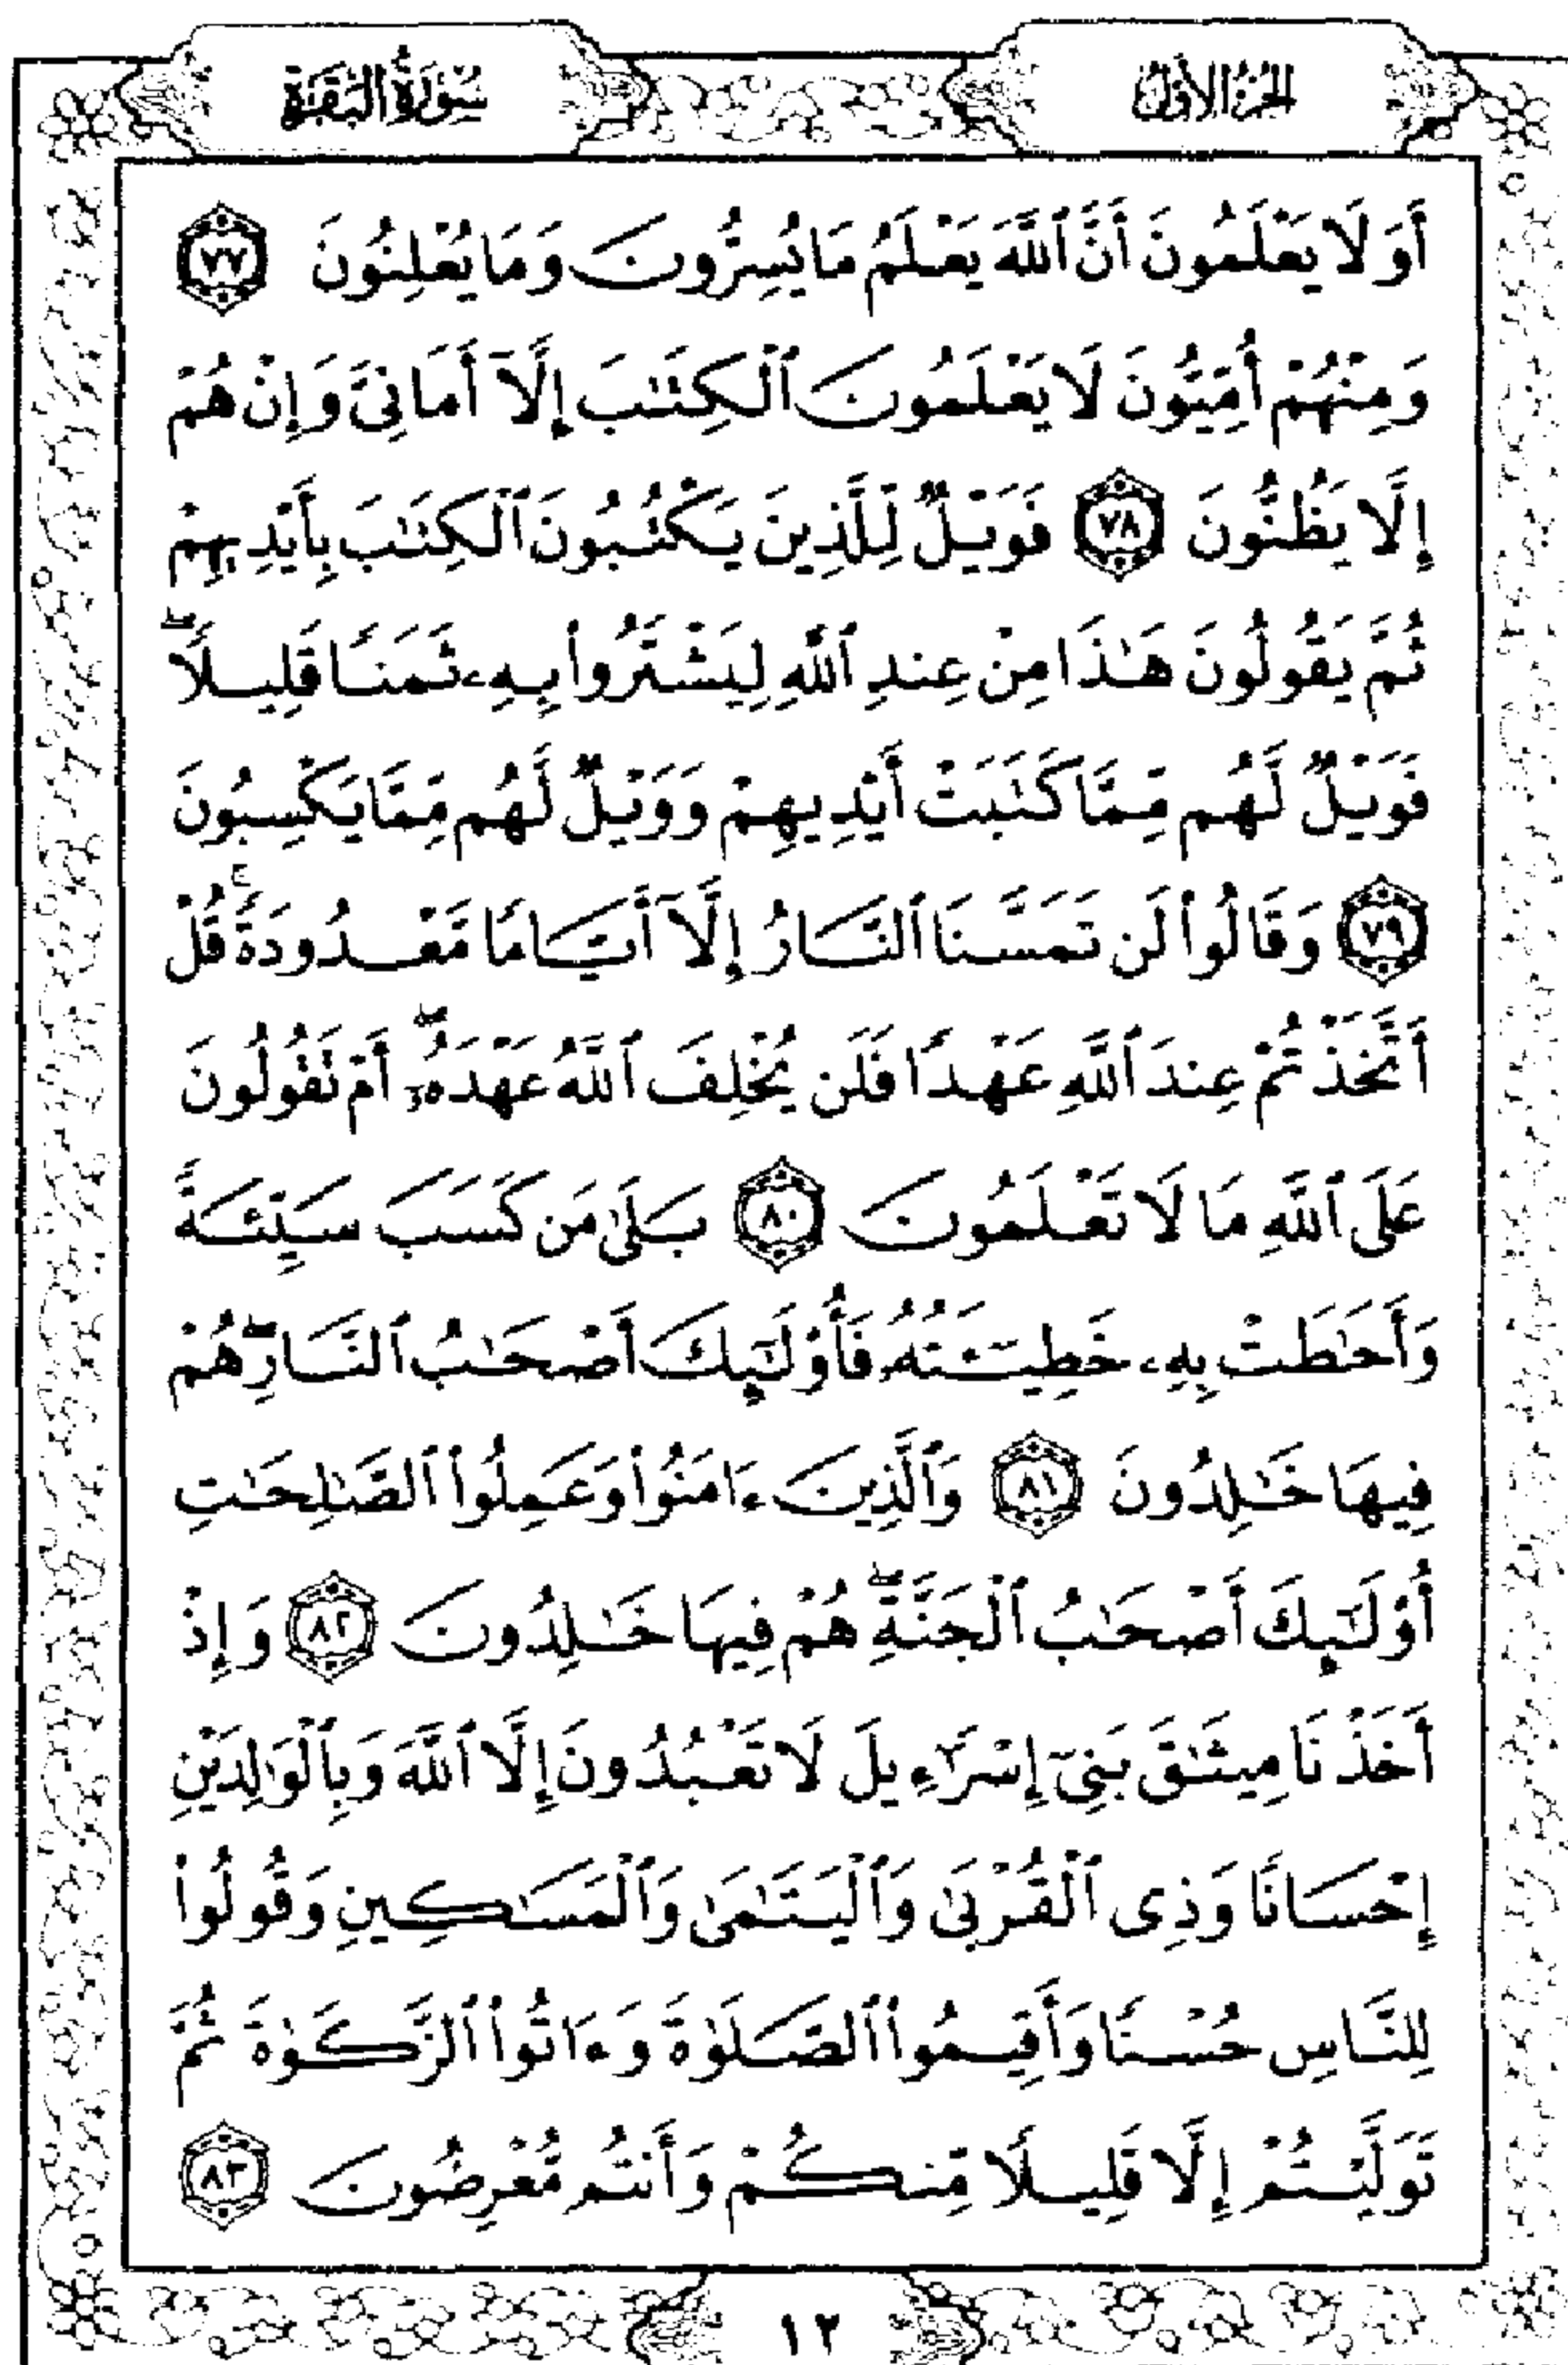 الجزء الأول
سورة البقرة
أَوَلَا يَعْلَمُونَ أَنَّ ٱللَّهَ يَعْلَمُ مَا يُسِرُّونَ وَمَا يُعْلِنُونَ ﴿٧٧﴾
وَمِنْهُمْ أُمِّيُّونَ لَا يَعْلَمُونَ ٱلْكِتَٰبَ إِلَّآ أَمَانِىَّ وَإِنْ هُمْ
إِلَّا يَظُنُّونَ ﴿٧٨﴾ فَوَيْلٌ لِّلَّذِينَ يَكْتُبُونَ ٱلْكِتَٰبَ بِأَيْدِيهِمْ
ثُمَّ يَقُولُونَ هَٰذَا مِنْ عِندِ ٱللَّهِ لِيَشْتَرُوا۟ بِهِۦ ثَمَنًا قَلِيلًا ۖ
فَوَيْلٌ لَّهُم مِّمَّا كَتَبَتْ أَيْدِيهِمْ وَوَيْلٌ لَّهُم مِّمَّا يَكْسِبُونَ
﴿٧٩﴾ وَقَالُوا۟ لَن تَمَسَّنَا ٱلنَّارُ إِلَّآ أَيَّامًا مَّعْدُودَةً ۚ قُلْ
أَتَّخَذْتُمْ عِندَ ٱللَّهِ عَهْدًا فَلَن يُخْلِفَ ٱللَّهُ عَهْدَهُۥٓ ۖ أَمْ تَقُولُونَ
عَلَى ٱللَّهِ مَا لَا تَعْلَمُونَ ﴿٨٠﴾ بَلَىٰ مَن كَسَبَ سَيِّئَةً
وَأَحَٰطَتْ بِهِۦ خَطِيٓـَٔتُهُۥ فَأُو۟لَٰٓئِكَ أَصْحَٰبُ ٱلنَّارِ ۖ هُمْ
فِيهَا خَٰلِدُونَ ﴿٨١﴾ وَٱلَّذِينَ ءَامَنُوا۟ وَعَمِلُوا۟ ٱلصَّٰلِحَٰتِ
أُو۟لَٰٓئِكَ أَصْحَٰبُ ٱلْجَنَّةِ ۖ هُمْ فِيهَا خَٰلِدُونَ ﴿٨٢﴾ وَإِذْ
أَخَذْنَا مِيثَٰقَ بَنِىٓ إِسْرَٰٓءِيلَ لَا تَعْبُدُونَ إِلَّا ٱللَّهَ وَبِٱلْوَٰلِدَيْنِ
إِحْسَانًا وَذِى ٱلْقُرْبَىٰ وَٱلْيَتَٰمَىٰ وَٱلْمَسَٰكِينِ وَقُولُوا۟
لِلنَّاسِ حُسْنًا وَأَقِيمُوا۟ ٱلصَّلَوٰةَ وَءَاتُوا۟ ٱلزَّكَوٰةَ ثُمَّ
تَوَلَّيْتُمْ إِلَّا قَلِيلًا مِّنكُمْ وَأَنتُم مُّعْرِضُونَ ﴿٨٣﴾
١٢